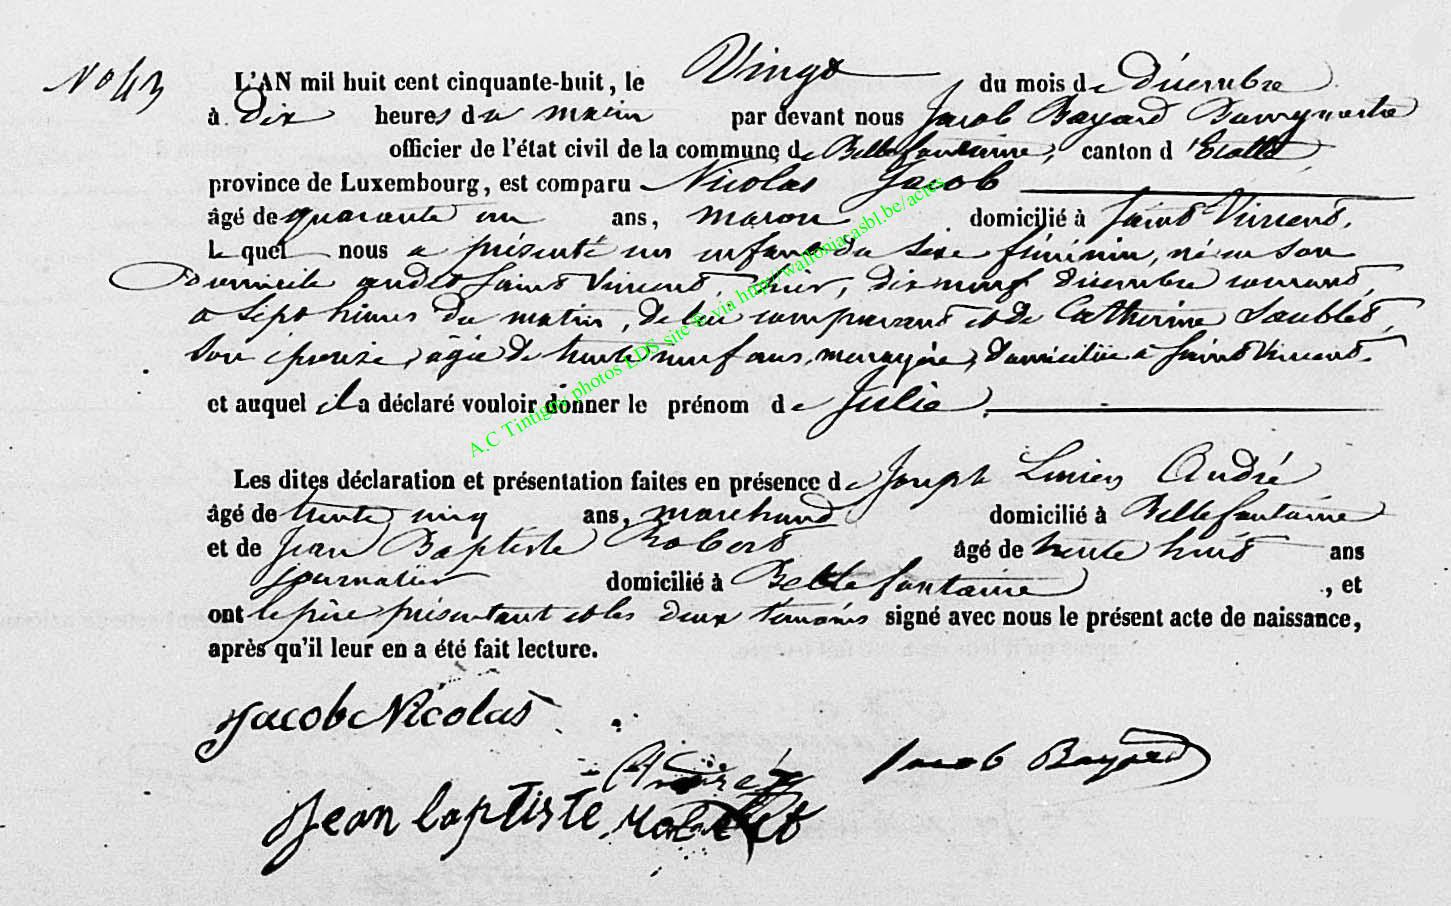 No 43
L'AN mil huit cent cinquante-huit, le Vingt du mois de Décembre
à Dix heures du matin par devant nous Jacob Bayard Bourgmestre
officier de l'état civil de la commune de Bellefontaine, canton d'Etalle
province de Luxembourg, est comparu Nicolas Jacob
âgé de quarante un ans, maçon domicilié à Saint Vincent,
Lequel nous a présenté un enfant du sexe féminin, né en son
Domicile audit Saint Vincent, hier, dix neuf décembre courant,
a sept heures du matin, de lui comparant et de Catherine Saublet,
son épouse, âgée de trente neuf ans, menagère, domiciliée à Saint Vincent.
et auquel il a déclaré vouloir donner le prénom de Julie
Les dites déclaration et présentation faites en présence de Joseph Lucien André
âgé de trente cinq ans, marchand domicilié à Bellefontaine
et de Jean Baptiste Robert âgé de trente huit ans
journalier domicilié à Bellefontaine, et
ont le père présentant et les deux témoins signé avec nous le présent acte de naissance,
après qu'il leur en a été fait lecture.
Jacob Nicolas
André Jacob Bayard
Jean baptiste robert
A.C Tintigny photos EDS site & via http//walloniacasbl.be/actes